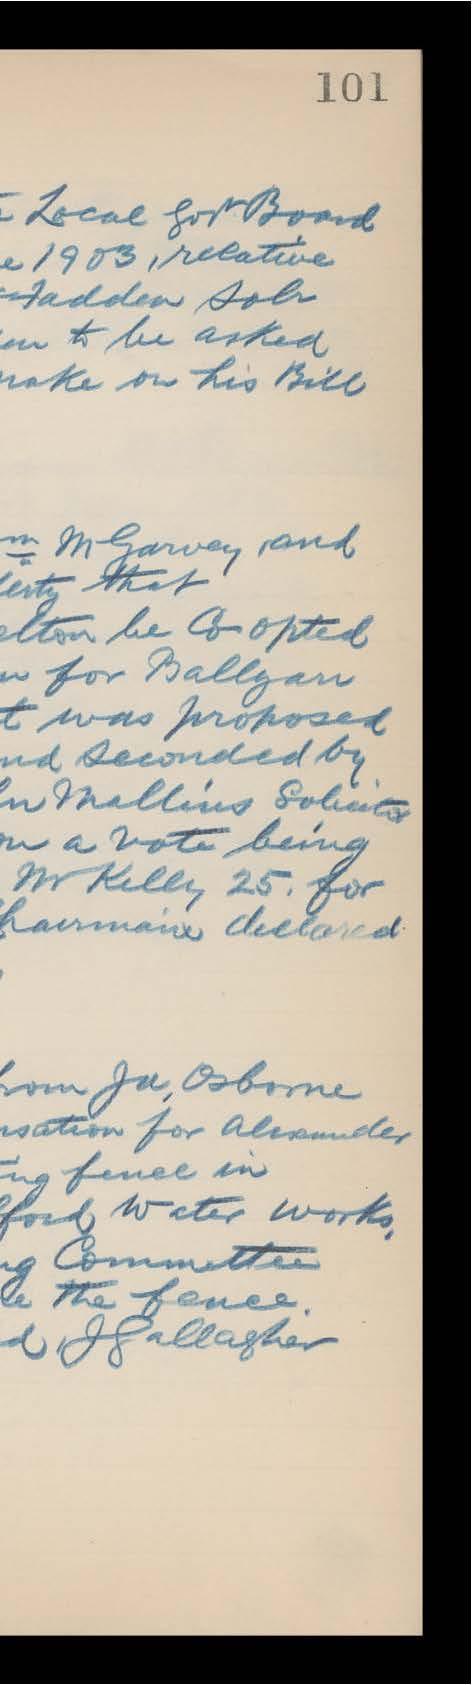 101
Local Govt Board
e 1903, relative
Fadden Solr
to be asked
make on his Bill
m McGarvey, and
erty that
elton be Co-opted
n for Ballyarr
t was proposed
nd Seconded by
hn Mallins Solicitor
on a vote being
Mr Kelly 25. for
hairman declared
rom Ja, Osborne
nsation for Alexander
ing fence in
fford Water Works,
ng Committee
the fence.
d, J Gallagher